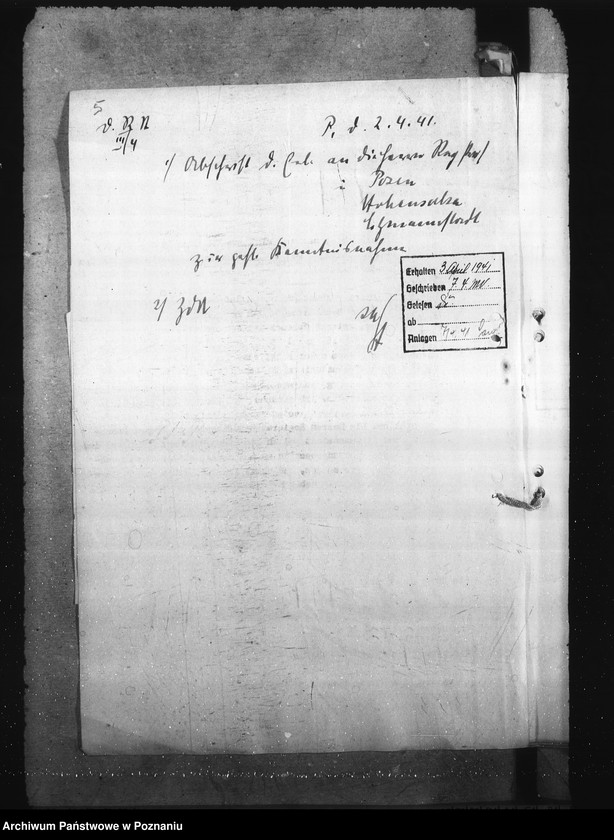 5
d. R St
III/4
P, d. 2.4.41.
1/ Abschrift d. Erl. an die Herrn Reg Präs
i
Posen
Hohensalza
Litzmannstadt
zur gefl. Kenntnisnahme
2/ ZdA
Erhalten 3 April 1941
Geschrieben 7.4.
Gelesen
ab
Anlagen
Archiwum Państwowe w Poznaniu